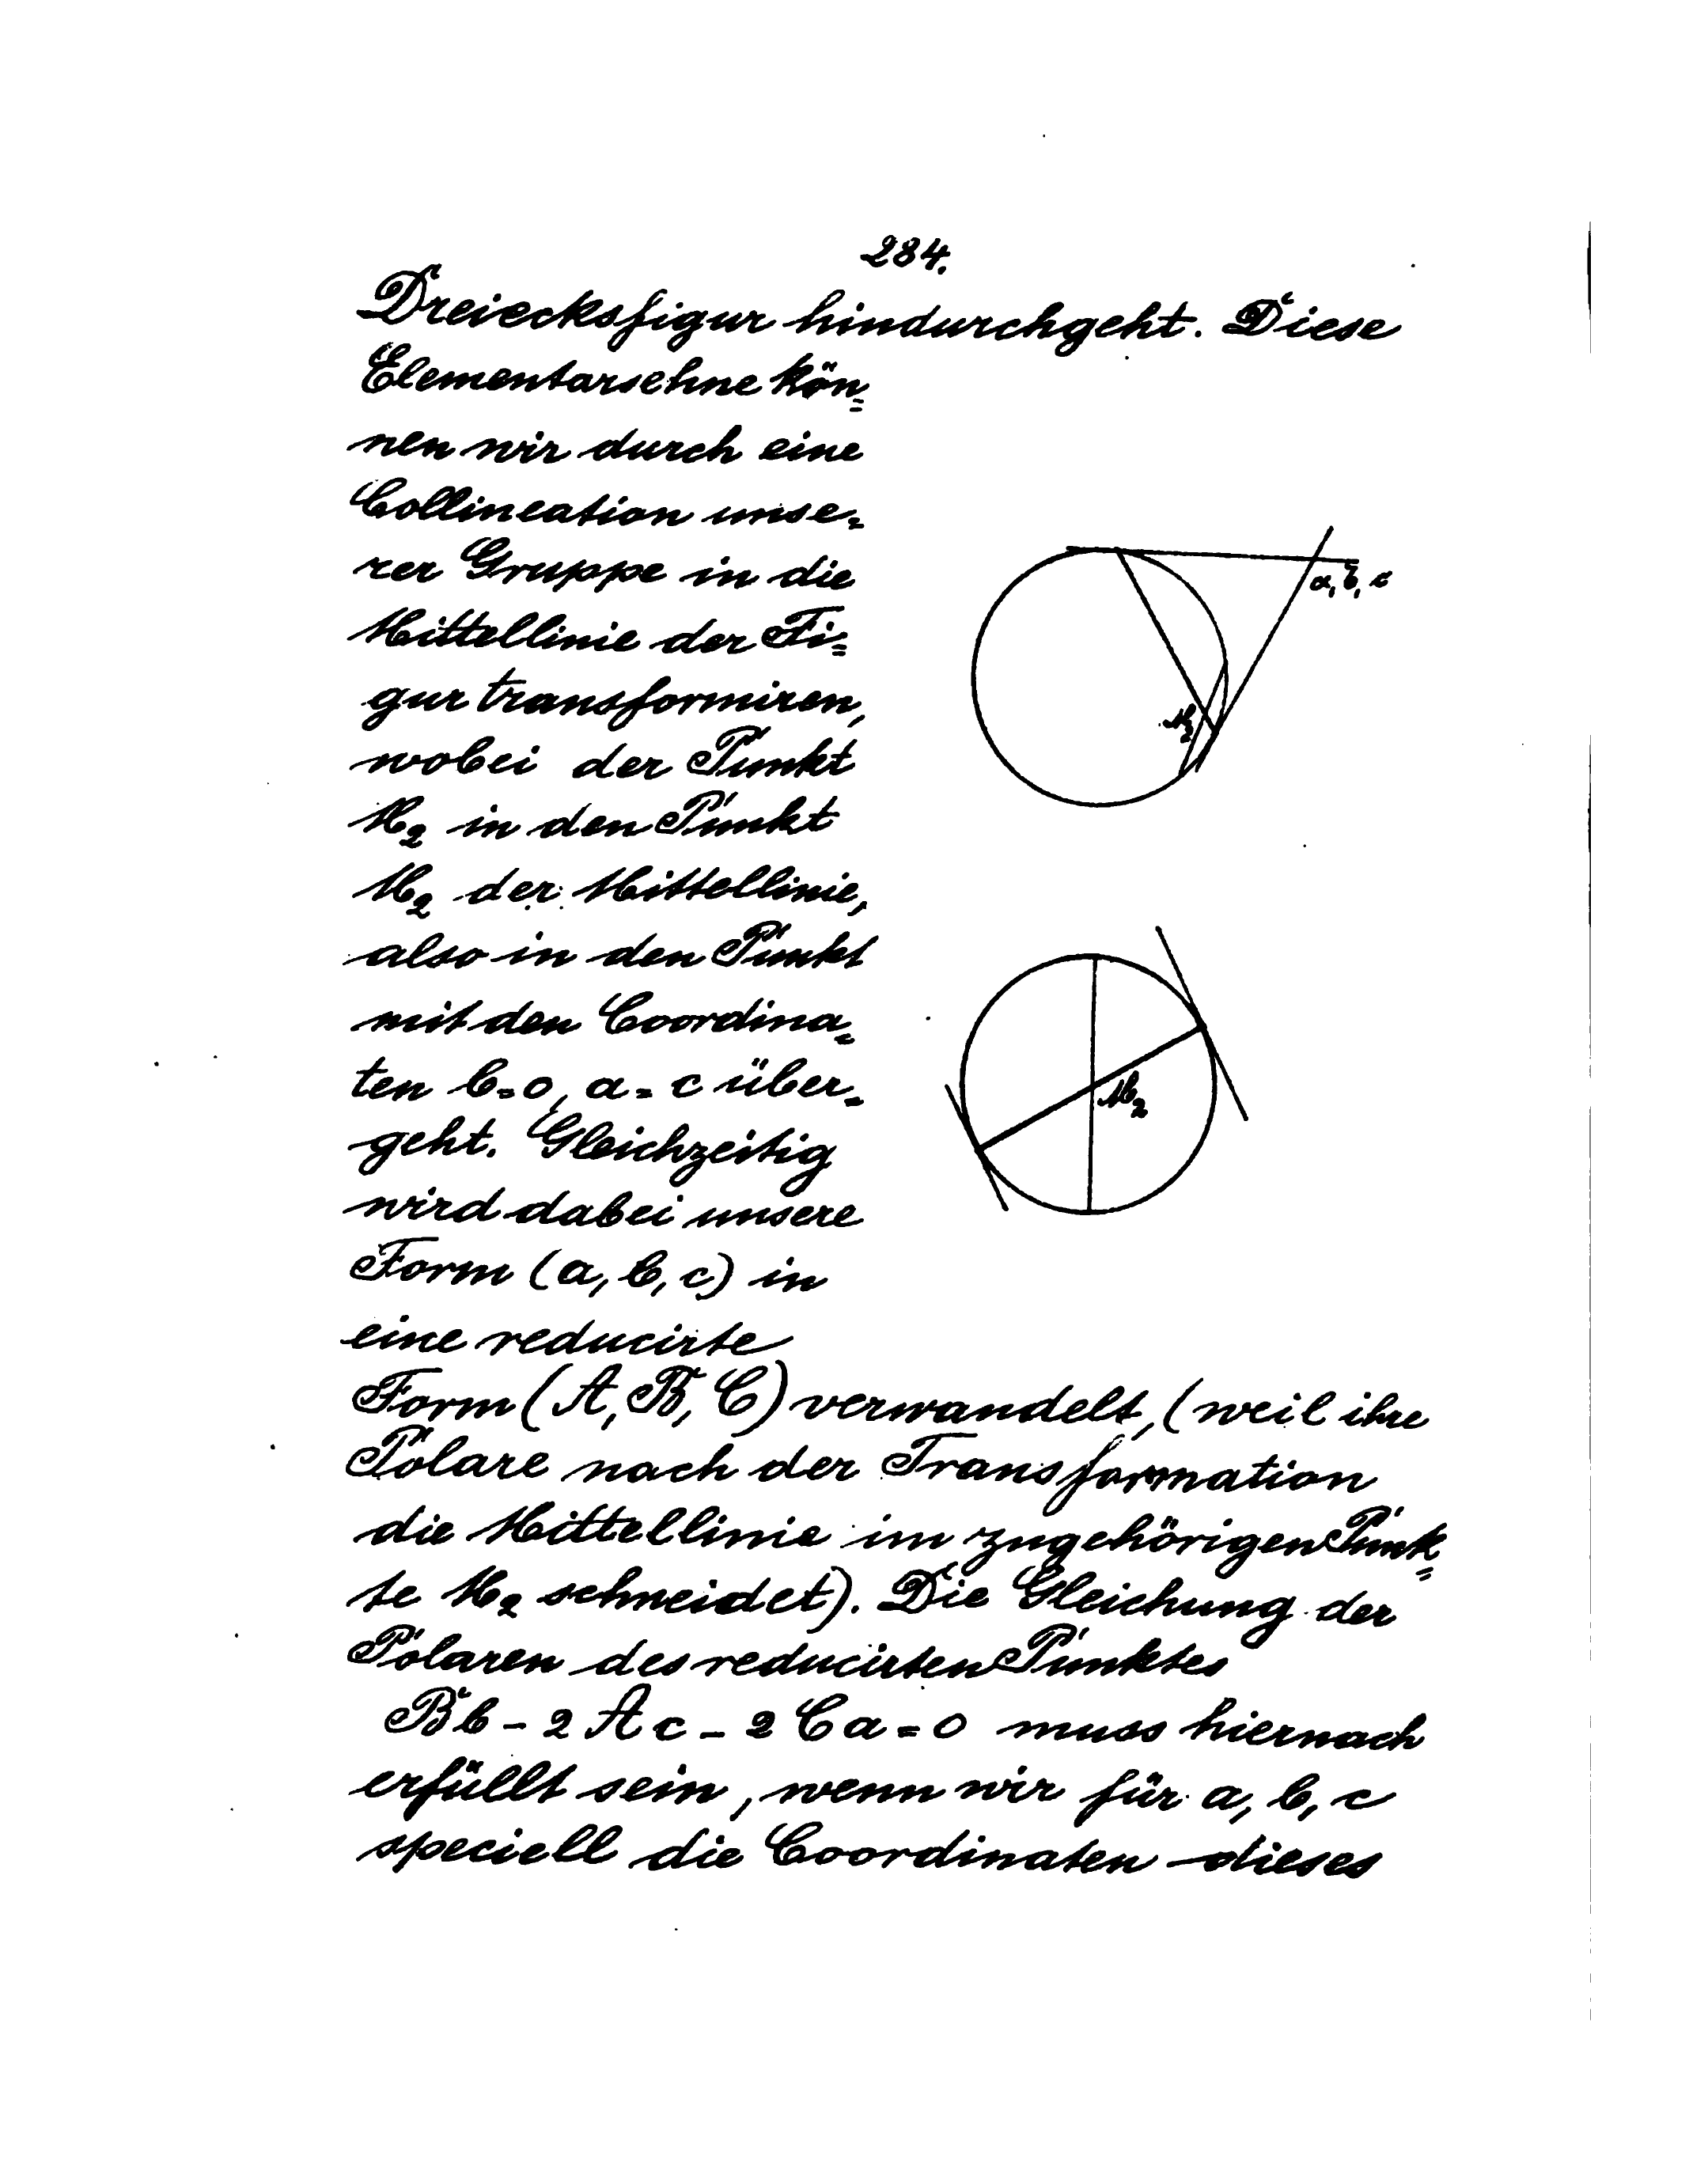 284.
Dreiecksfigur hindurchgeht. Diese
Elementarsehne kön=
nen wir durch eine
Collineation unse=
rer Gruppe in die
Mittellinie der Fi=
gur transformiren,
wobei der Punkt
M₂ in den Punkt
M₂ der Mittellinie,
also in den Punkt
mit den Coordina=
ten b=0, a=c über=
geht. Gleichzeitig
wird dabei unsere
Form (a, b, c) in
eine reducirte
a, b, c
M₂
M₂
Form (A, B, C) verwandelt, (weil ihre
Polare nach der Transformation
die Mittellinie im zugehörigen Punk=
te M₂ schneidet). Die Gleichung der
Polaren des reducirten Punktes
Bb - 2Ac - 2Ca = 0 muss hiernach
erfüllt sein, wenn wir für a, b, c
speciell die Coordinaten dieses